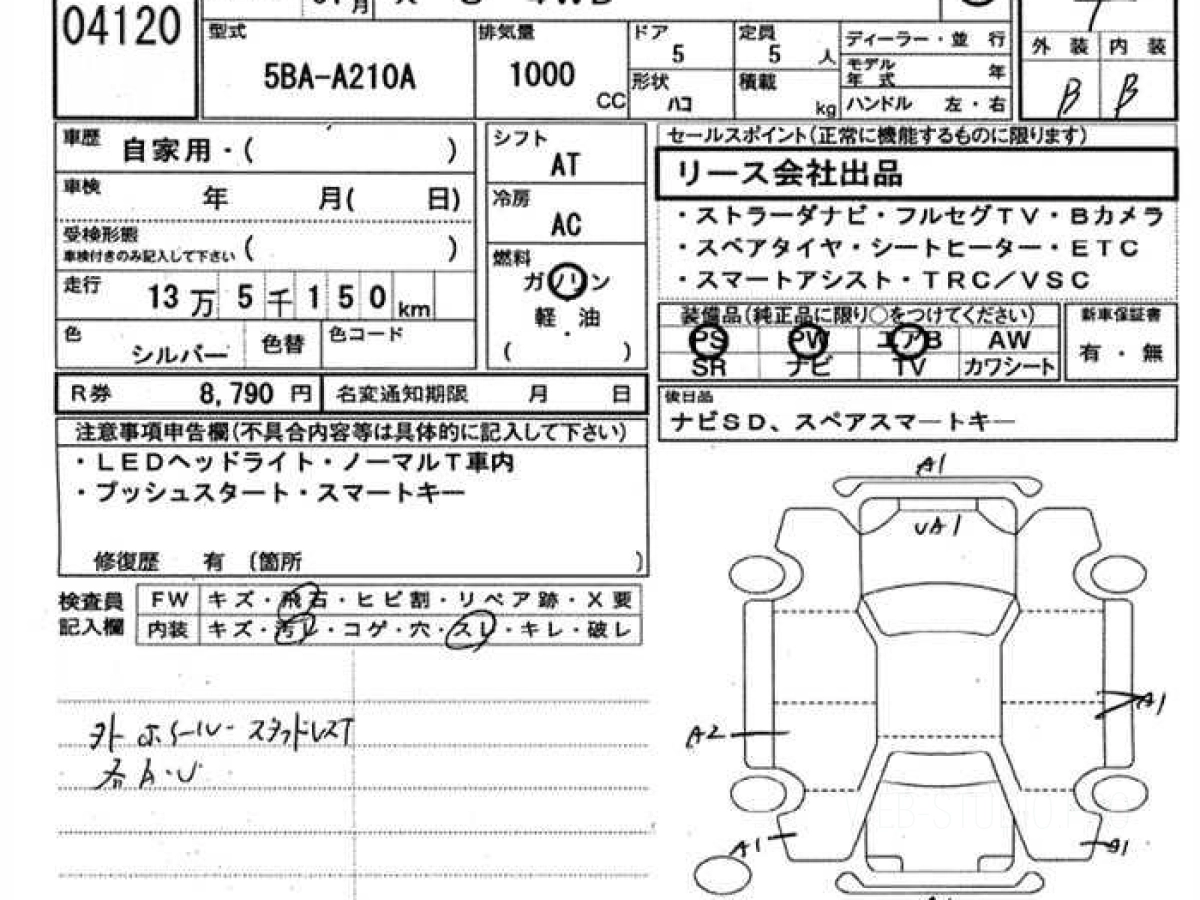 04120
月
4WD
型式
5BA-A210A
排気量
1000
CC
ドア
5
定員
5 人
形状
ハコ
積載
kg
ディーラー・並 行
モデル
年 式 年
ハンドル 左・右
外 装 内 装
B B
車歴
自家用・( )
車検
年 月( 日)
受検形態
車検付きのみ記入して下さい ( )
走行
13万5千150km
色
シルバー
色替
色コード
シフト
AT
冷房
AC
燃料
ガソリン
軽 油
・
( )
セールスポイント(正常に機能するものに限ります)
リース会社出品
・ストラーダナビ・フルセグTV・Bカメラ
・スペアタイヤ・シートヒーター・ETC
・スマートアシスト・TRC/VSC
装備品(純正品に限り○をつけてください)
PS PW エアB AW
SR ナビ TV カワシート
新車保証書
有・無
R券 8,790 円
名変通知期限 月 日
後日品
ナビSD、スペアスマートキー
注意事項申告欄(不具合内容等は具体的に記入して下さい)
・LEDヘッドライト・ノーマルT車内
・プッシュスタート・スマートキー
修復歴 有 〔箇所 )
検査員
記入欄
FW キズ・飛石・ヒビ割・リペア跡・X要
内装 キズ・汚レ・コゲ・穴・スレ・キレ・破レ
外 ホイール・スタッドレスT
各A・U
A1
UA1
A1
A2
A1
A1
WEB-STUDIO.PRO